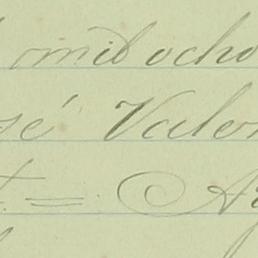 mil ocho
sé Valen
= A